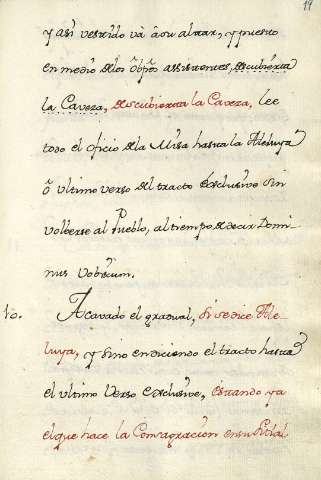 19
y asi vestido và à su altar, y puesto
en medio de los obpos assistentes, descubierta
la Caveza, descubierta la Caveza, lee
todo el oficio de la Misa hasta la Aleluya
ô ultimo verso del tracto exclusive sin
volverse al Pueblo, al tiempo de decir Domi-
nus vobiscum.
10. Acavado el gradual, si se dice Ale-
luya, y sino en diciendo el tracto hasta
el ultimo verso exclusive, estando ya
el que hace la Consagracion en su Sitial